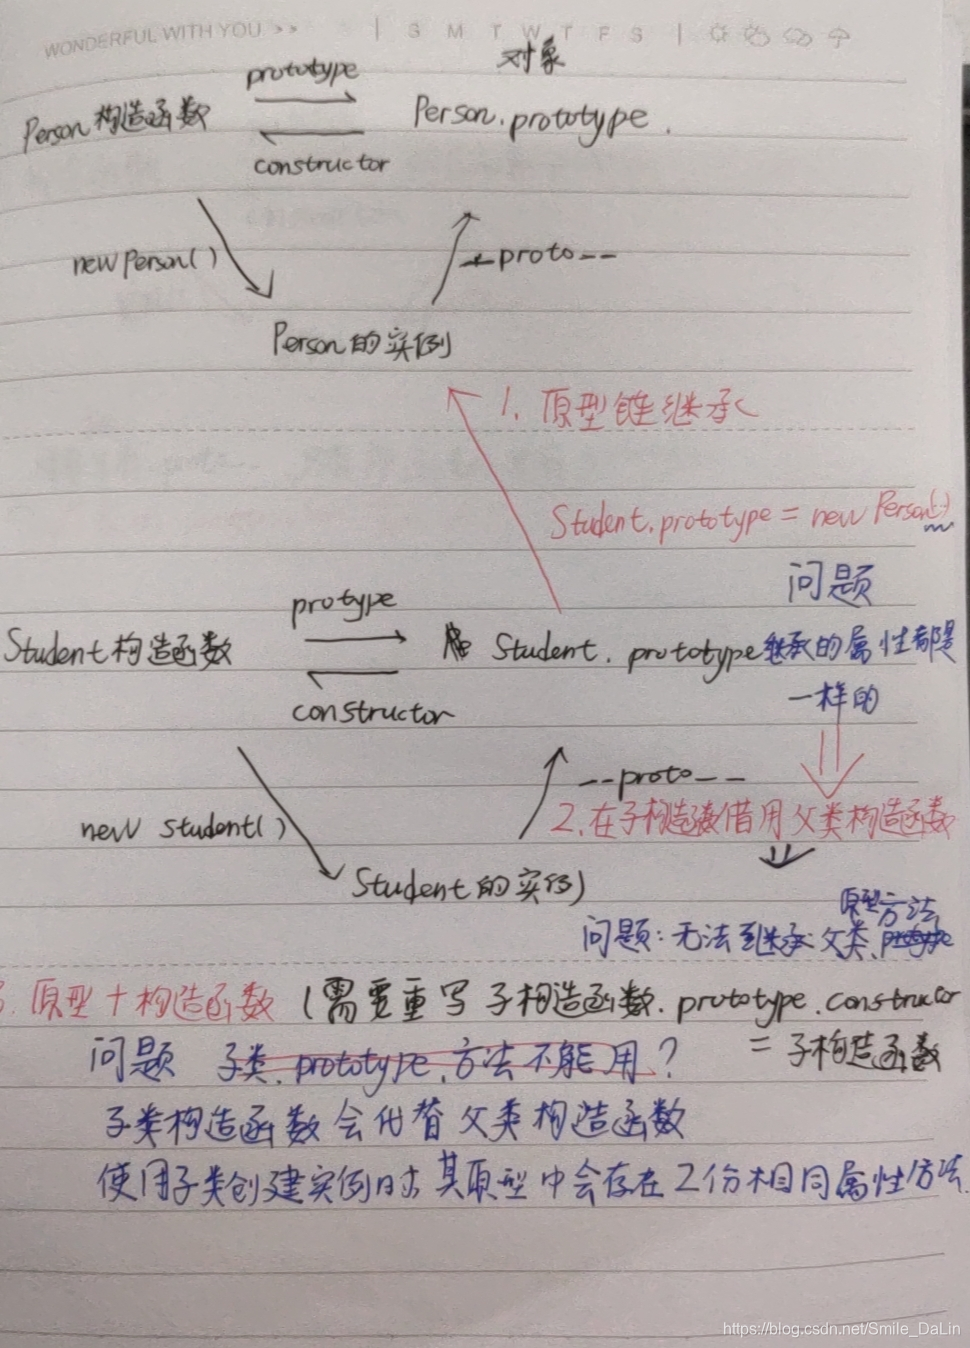 WONDERFUL WITH YOU >> | S M T W T F S |
对象
prototype
Person构造函数 Person.prototype.
constructor
new Person() __proto__
Person的实例
1. 原型链继承
Student.prototype = new Person()
问题
protype
Student构造函数 Student.prototype继承的属性都是
一样的
constructor
__proto__
new Student() 2.在子构造函数借用父类构造函数
Student的实例
原型方法
问题:无法继承父类.
3.原型+构造函数(需要重写子构造函数.prototype.constructor
= 子构造函数
问题 子类.prototype.方法不能用?
子类构造函数会代替父类构造函数
使用子类创建实例时,其原型中会存在2份相同属性/方法.
https://blog.csdn.net/Smile_DaLin